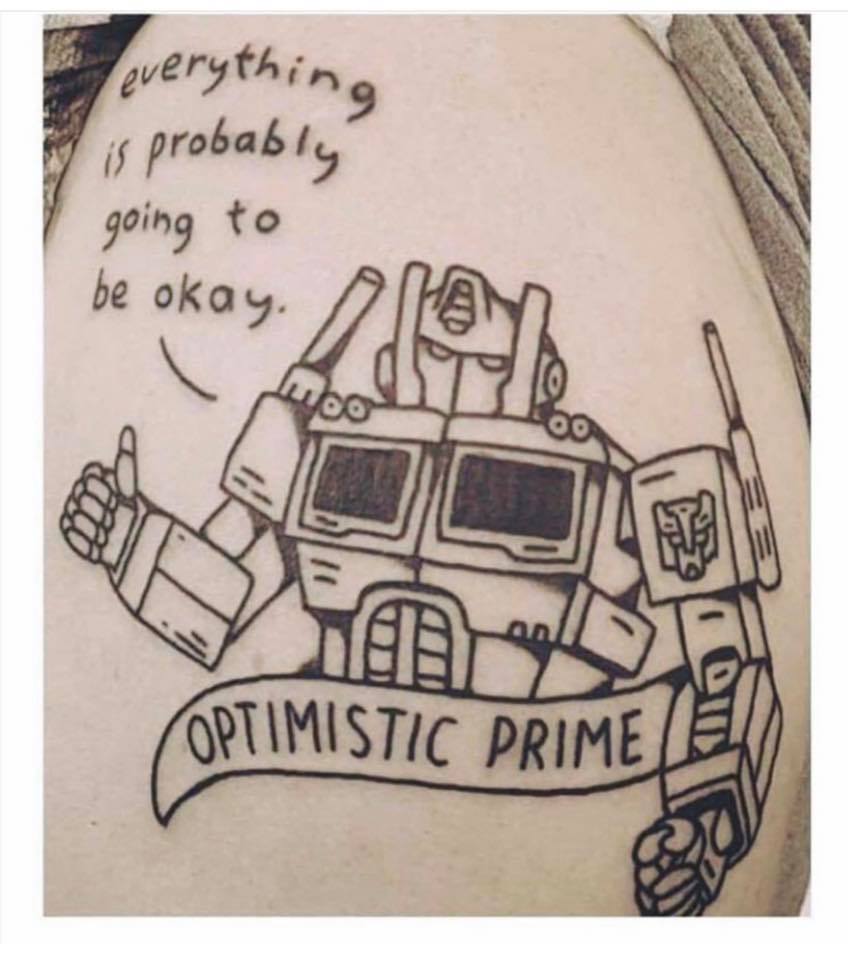 everything
is probably
going to
be okay.
OPTIMISTIC PRIME